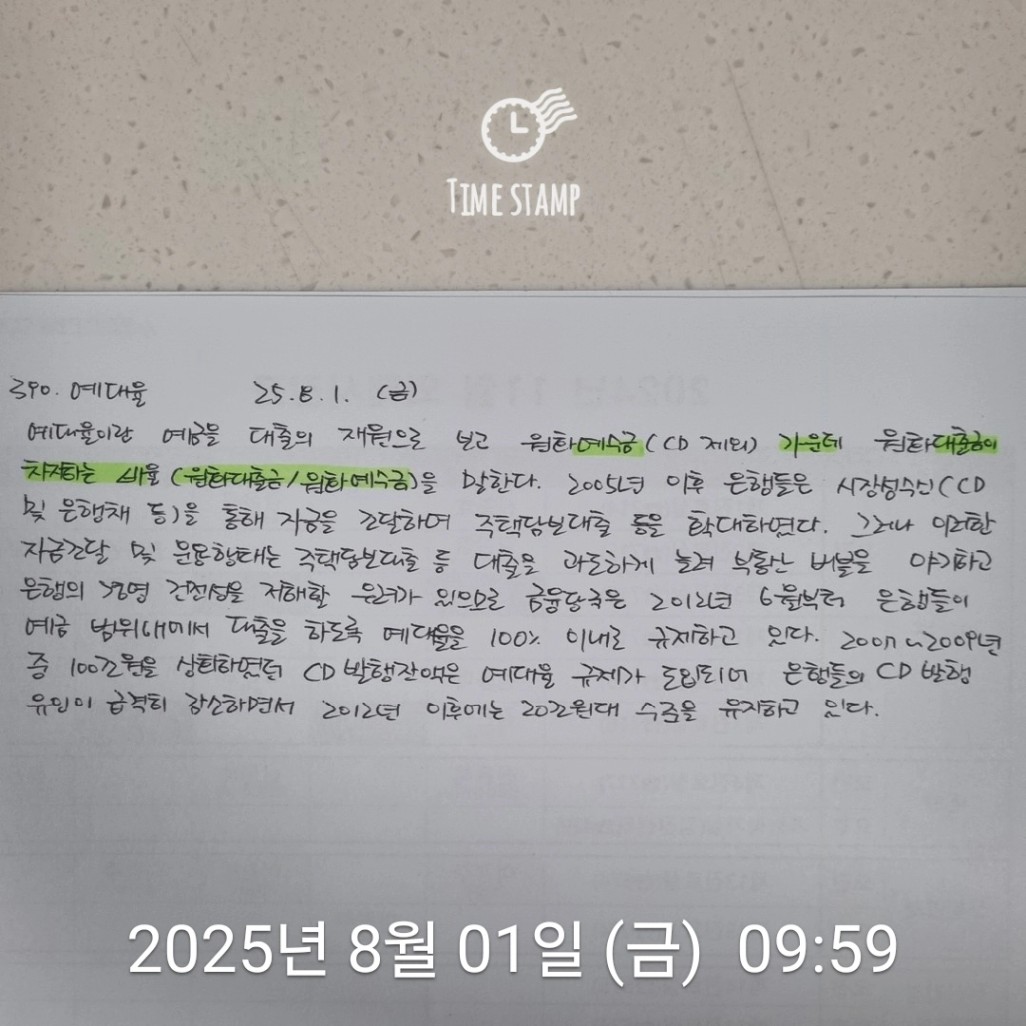 TIME STAMP
390. 예대율 25.8.1. (금)
예대율이란 예금을 대출의 재원으로 보고 원화예수금(CD 제외) 가운데 원화대출금이
차지하는 비율(원화대출금/원화예수금)을 말한다. 2005년 이후 은행들은 시장성수신(CD
및 은행채 등)을 통해 자금을 조달하며 주택담보대출 등을 확대하였다. 그러나 이러한
자금조달 및 운용형태는 주택담보대출 등 대출을 과도하게 늘려 부동산 버블을 야기하고
은행의 경영 건전성을 저해할 우려가 있으므로 금융당국은 2012년 6월부터 은행들이
예금 범위내에서 대출을 하도록 예대율을 100% 이내로 규제하고 있다. 2007~2009년
중 100조원을 상회하였던 CD 발행잔액은 예대율 규제가 도입되어 은행들의 CD 발행
유인이 급격히 감소하면서 2012년 이후에는 20조원대 수준을 유지하고 있다.
2025년 8월 01일 (금) 09:59